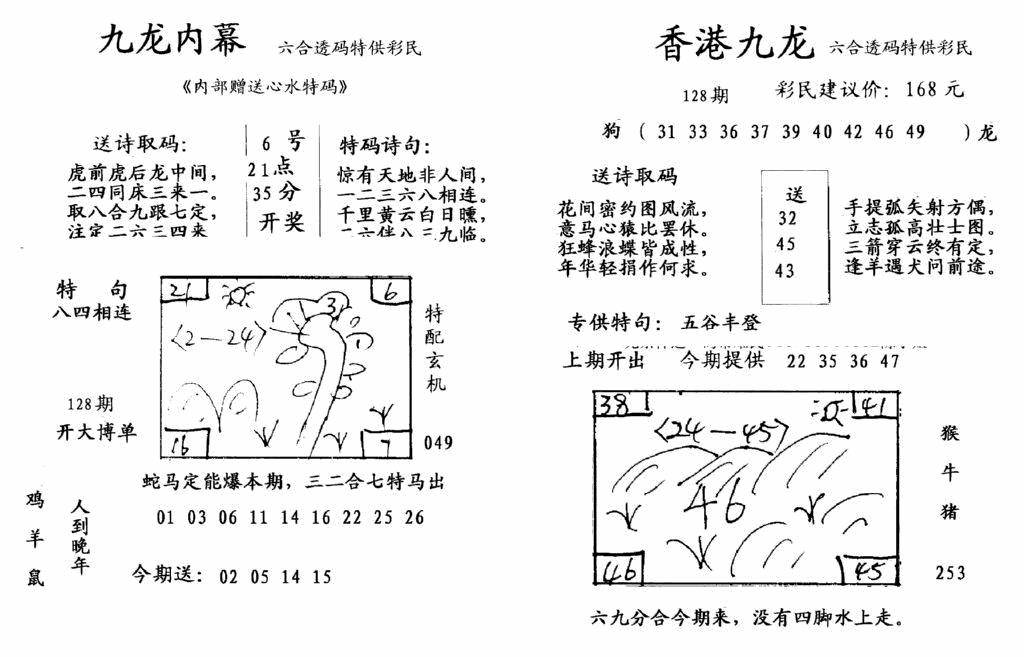 九龙内幕 六合透码特供彩民
《内部赠送心水特码》
送诗取码：
虎前虎后龙中间，
二四同床三来一。
取八合九跟七定，
注定二六三四来
6 号
21点
35分
开奖
特码诗句：
惊有天地非人间，
一二三六八相连。
千里黄云白日曛，
二六伴八三九临。
特 句
八四相连
128期
开大博单
21
6
3
〈2—24〉
16
7
特配玄机
049
蛇马定能爆本期，三二合七特马出
鸡羊鼠
人到晚年
01 03 06 11 14 16 22 25 26
今期送：02 05 14 15
香港九龙 六合透码特供彩民
128期 彩民建议价：168元
狗（31 33 36 37 39 40 42 46 49 ）龙
送诗取码
花间密约图风流，
意马心猿比罢休。
狂蜂浪蝶皆成性，
年华轻捐作何求。
送
32
45
43
手提弧矢射方偶，
立志孤高壮士图。
三箭穿云终有定，
逢羊遇犬问前途。
专供特句：五谷丰登
上期开出 今期提供 22 35 36 47
38
41
〈24—45〉
46
46
45
猴牛猪
253
六九分合今期来，没有四脚水上走。